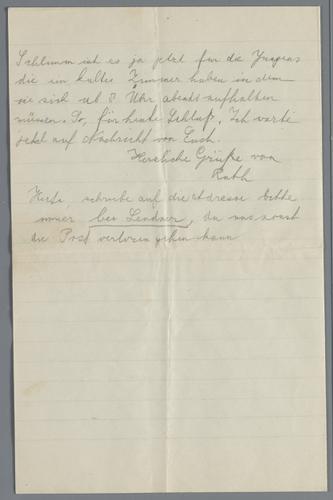 Schlimm ist es ja jetzt für die
die ein kaltes Zimmer haben in dem
sie sich ab 8 Uhr abends aufhalten
müssen. So, für heute Schluß. Ich warte
jetzt auf Nachricht von Euch.
Herzliche Grüße von
Ruth
schreibe auf die Adresse bitte
immer bei Lendner, da uns sonst
die Post verloren gehen kann